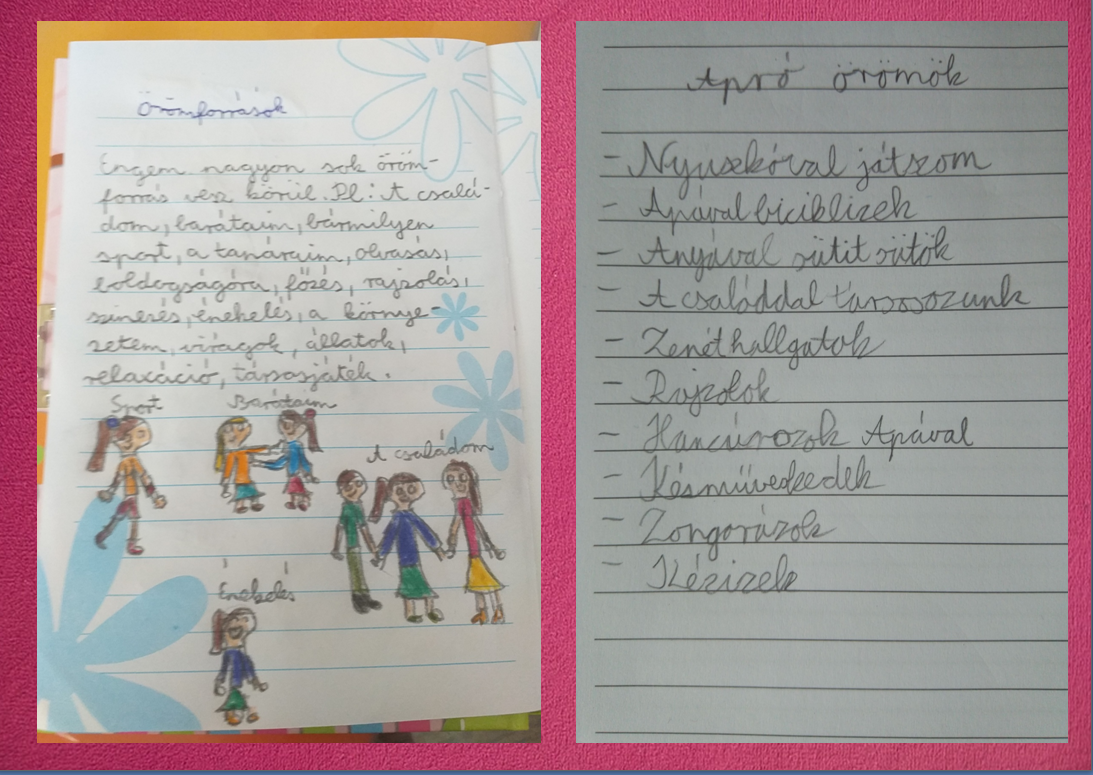 Örömforrások
Engem nagyon sok öröm-
forrás vesz körül. Pl: A csalá-
dom, barátaim, bármilyen
sport, a tanáraim, olvasás,
boldogságóra, főzés, rajzolás,
színezés, éneklés, a környe-
zetem, virágok, állatok,
relaxáció, társasjáték.
Sport
Barátaim
A családom
Éneklés
Apró örömök
- Nyuszkóval játszom
- Apával biciklizek
- Anyával sütit sütök
- A családdal társasozunk
- Zenét hallgatok
- Rajzolok
- Hancúrozok Apával
- Késművedkedek
- Zongorázok
- Kézizek